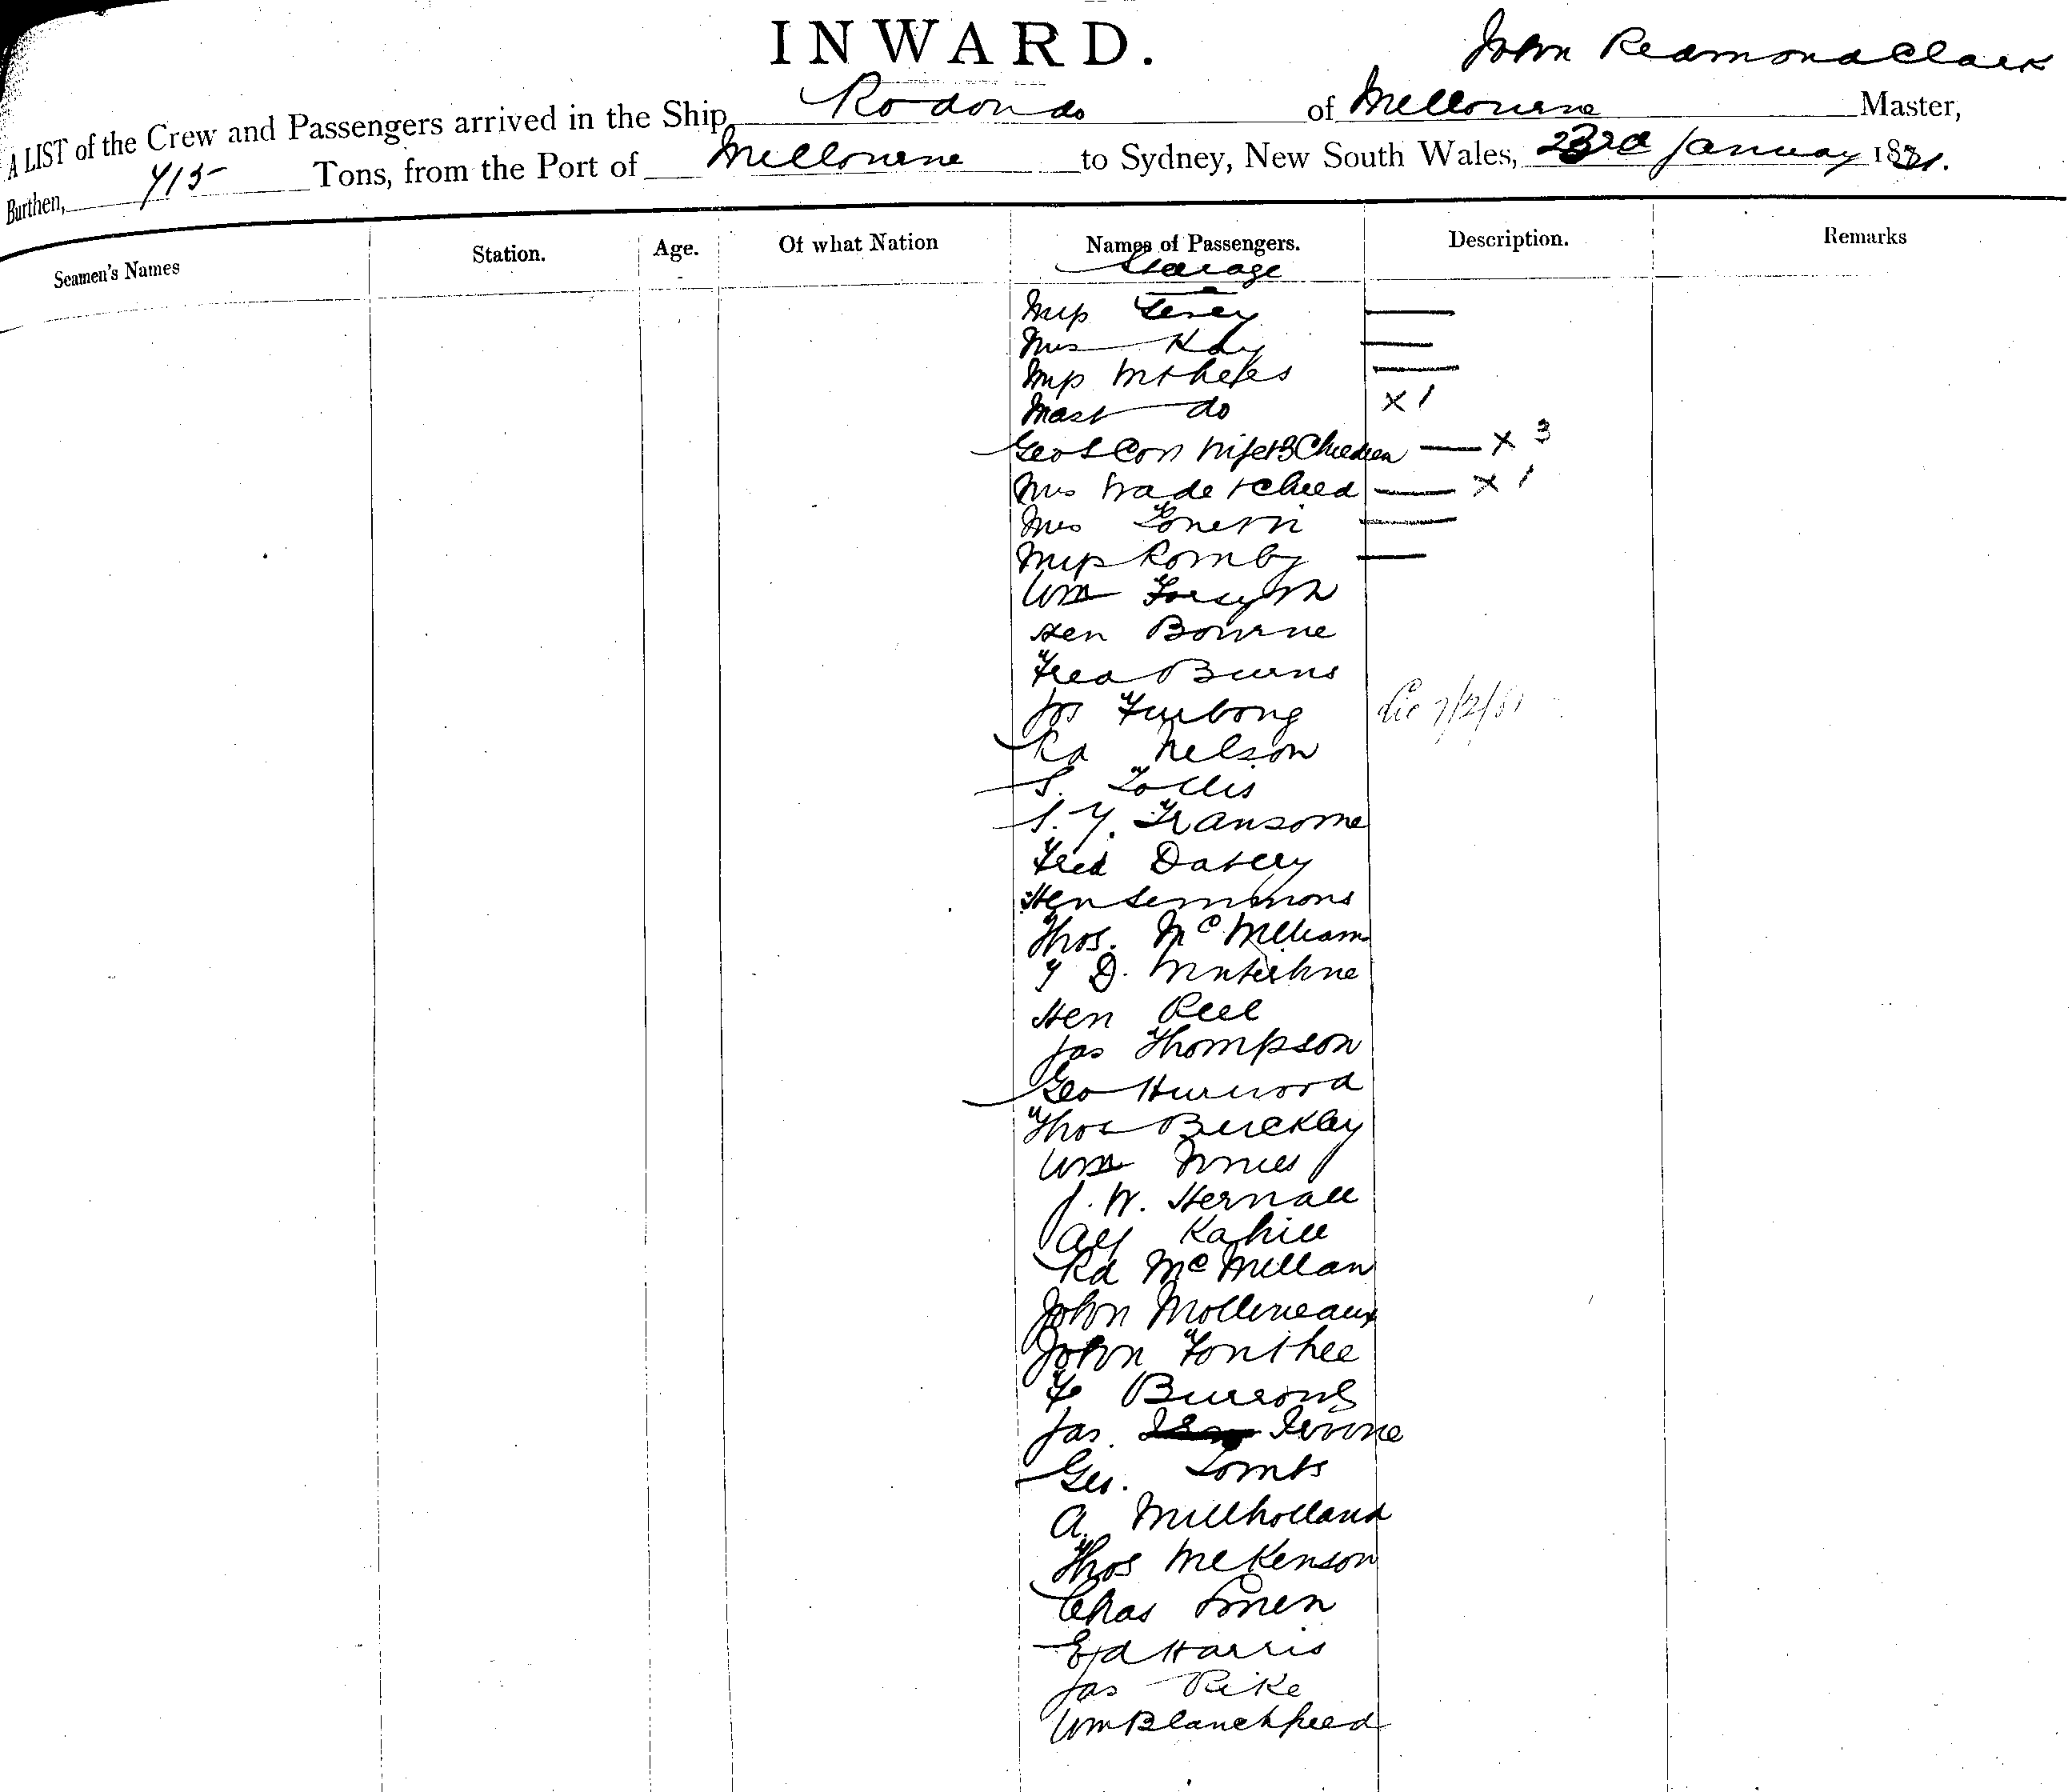 INWARD.
John Redmond Clark
A LIST of the Crew and Passengers arrived in the Ship Rodondo of Melbourne Master,
Burthen, 715 Tons, from the Port of Melbourne to Sydney, New South Wales, 23rd January 1881.
Seamen's Names Station. Age. Of what Nation Names of Passengers. Description. Remarks
Steerage
Miss
Mrs Kay
Miss
Mast do × 1
Geo Wife & 3 Children × 3
Mrs Wade & Child × 1
Mrs
Miss Romby
Wm Forsyth
Hen Bourne
Fred Burns
Jos Furbong
Rd Nelson
S. Tollis
S. Y. Transome
Fred
Hen Simmons
Thos. Mc William
D.
Hen Peel
Jas Thompson
Geo Hurword
Thos Buckley
Wm
J. W. Hernall
Alf Kahill
Rd McMillan
John Mollineaux
John
Burrows
Jas. Irvine
Geo. Tombs
A. Millholland
Thos McKenson
Chas
Ed Harris
Jas Pike
Wm Blanchfield